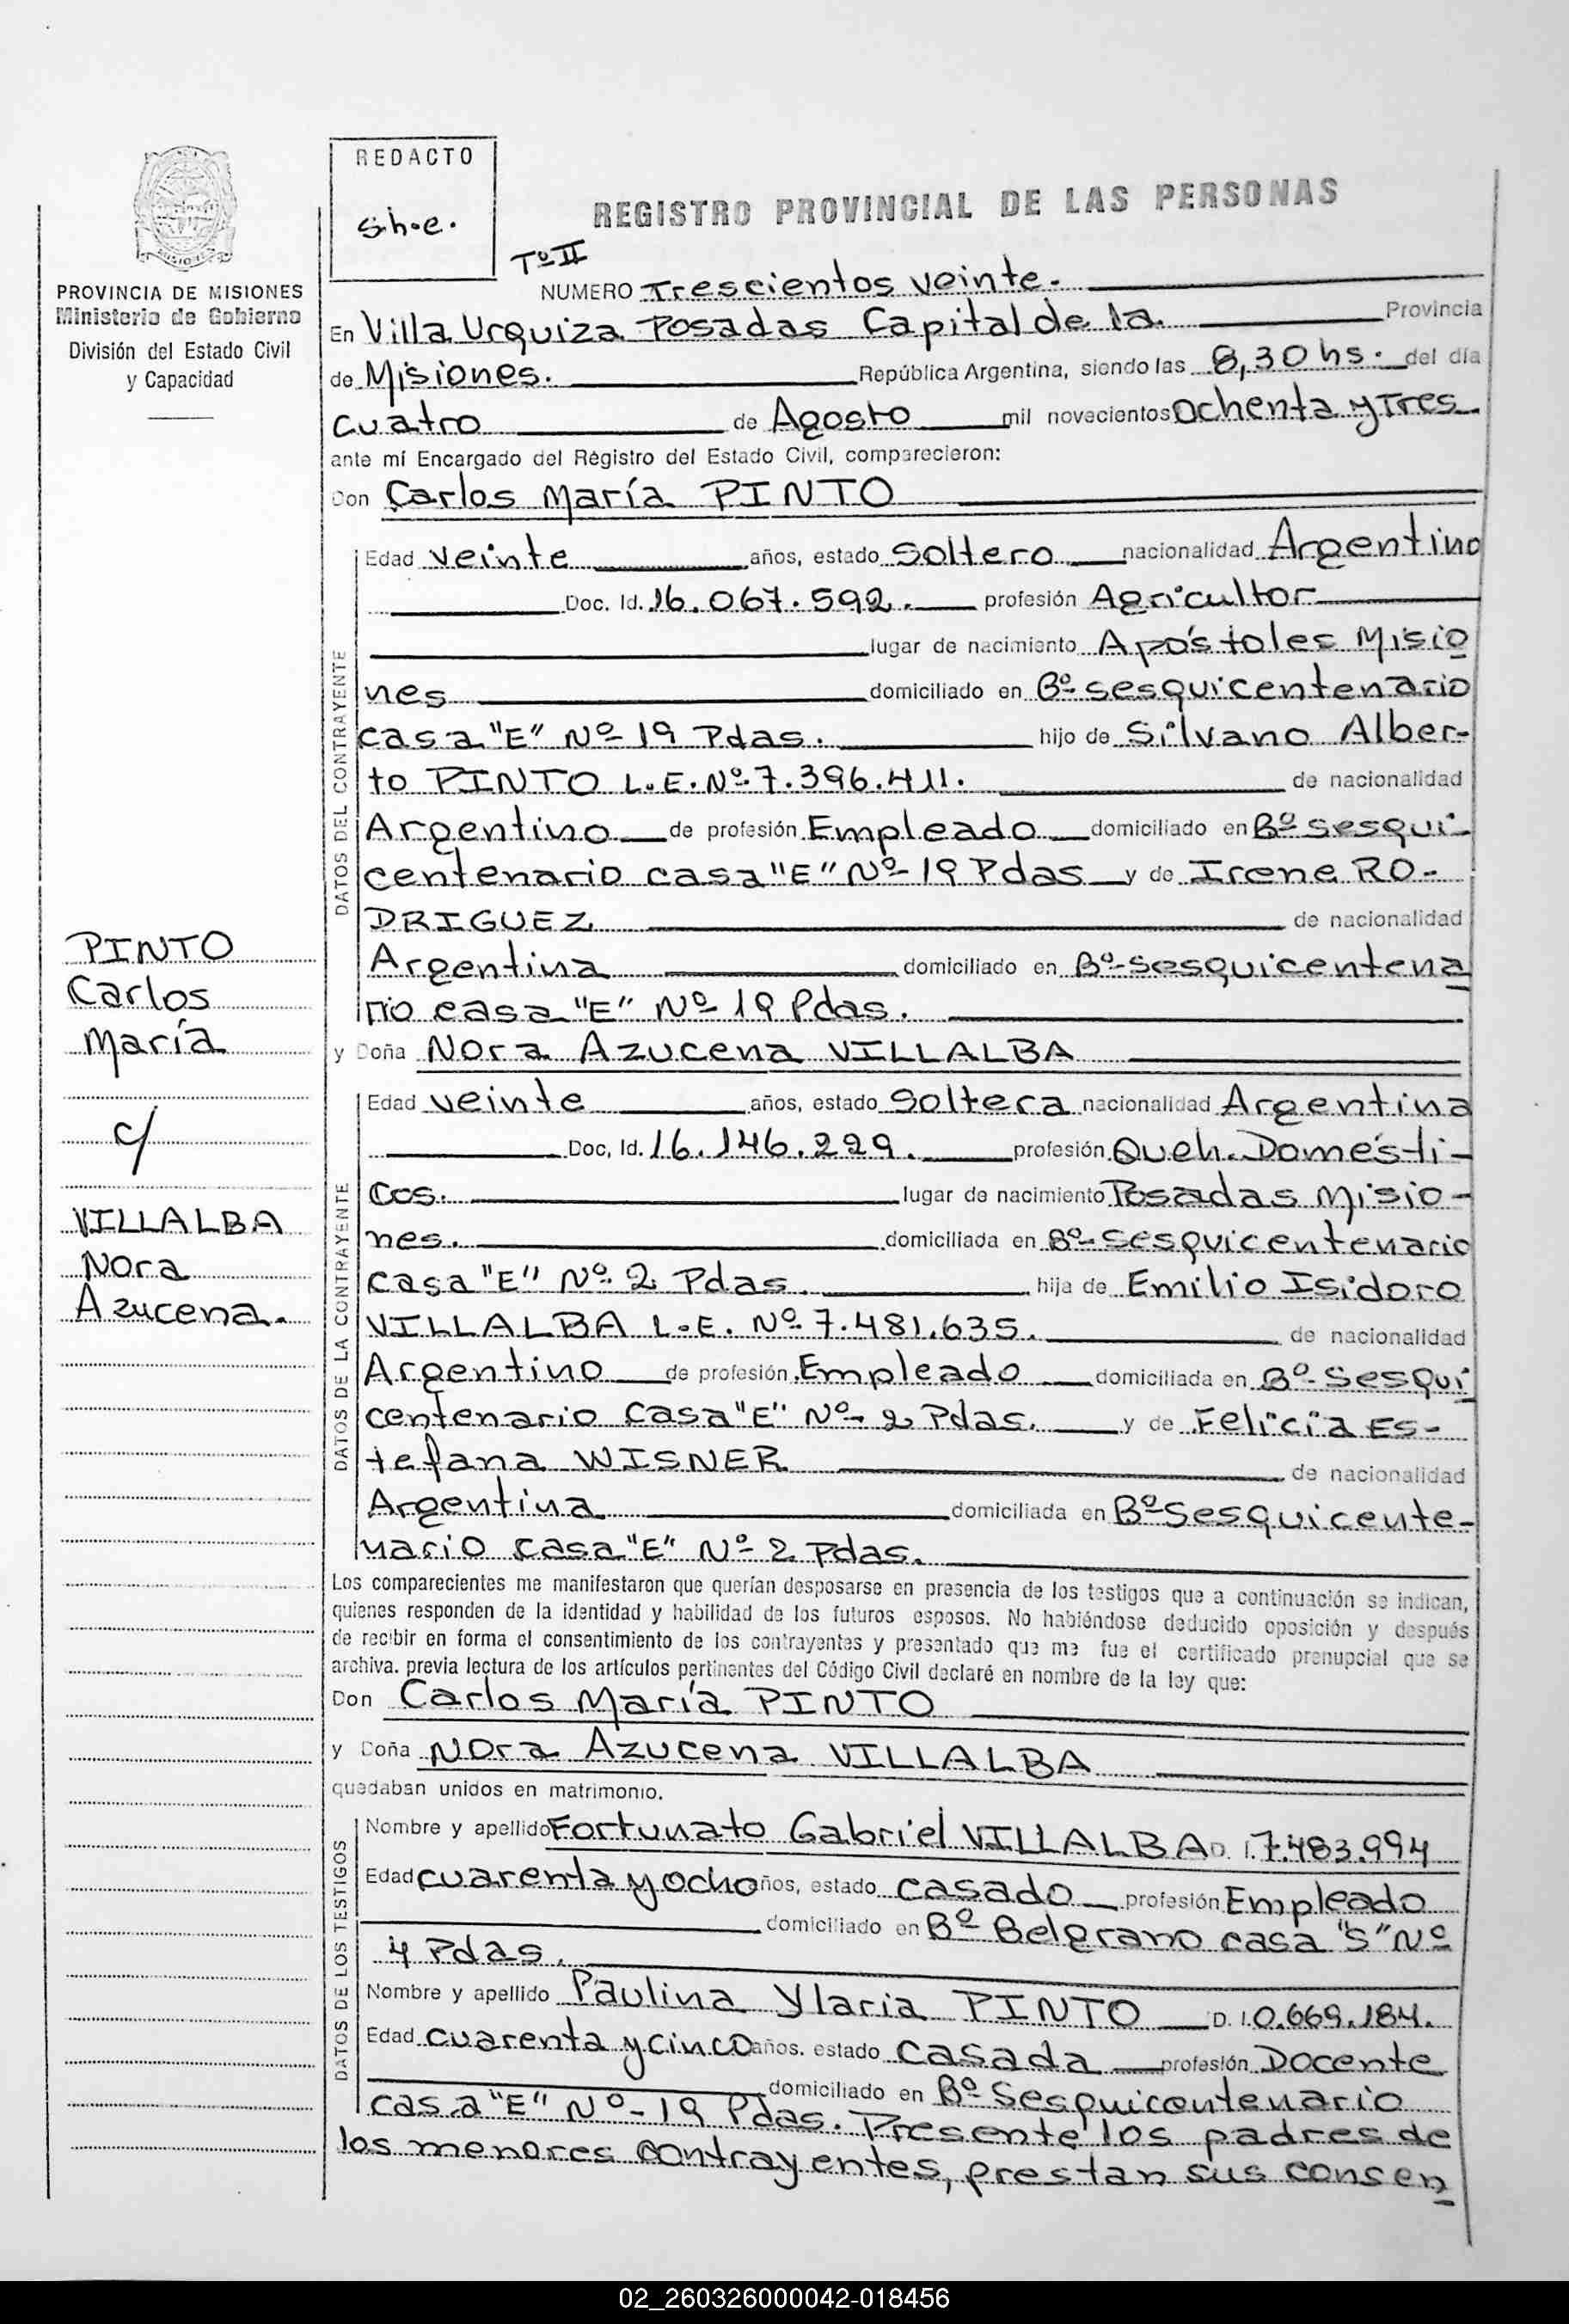 REDACTO
s.h.e.
REGISTRO PROVINCIAL DE LAS PERSONAS
Tº II
NUMERO Trescientos veinte.
PROVINCIA DE MISIONES
Ministerio de Gobierno
División del Estado Civil
y Capacidad
En Villa Urquiza Posadas Capital de la. Provincia
de Misiones. República Argentina, siendo las 8,30 hs. del día
cuatro de Agosto mil novecientos ochenta y Tres
ante mí Encargado del Registro del Estado Civil, comparecieron:
Don Carlos María PINTO
DATOS DEL CONTRAYENTE
Edad veinte años, estado soltero nacionalidad Argentino
Doc. Id. 16.067.592. profesión Agricultor
lugar de nacimiento Apóstoles Misio
nes domiciliado en Bº sesquicentenario
casa "E" Nº 19 Pdas. hijo de Silvano Alber-
to PINTO L.E. Nº 7.396.411. de nacionalidad
Argentino de profesión Empleado domiciliado en Bº sesqui-
centenario casa "E" Nº 19 Pdas y de Irene RO-
DRIGUEZ de nacionalidad
Argentina domiciliado en Bº sesquicentena
rio casa "E" Nº 19 Pdas.
PINTO
Carlos
María
c/
VILLALBA
Nora
Azucena.
y Doña Nora Azucena VILLALBA
DATOS DE LA CONTRAYENTE
Edad veinte años, estado soltera nacionalidad Argentina
Doc, Id. 16.146.229. profesión Queh. Domésti-
cos. lugar de nacimiento Posadas Misio-
nes. domiciliada en Bº sesquicentenario
casa "E" Nº 2 Pdas. hija de Emilio Isidoro
VILLALBA L.E. Nº 7.481.635. de nacionalidad
Argentino de profesión Empleado domiciliada en Bº Sesqui
centenario casa "E" Nº 2 Pdas. y de Felicia Es-
tefana WISNER de nacionalidad
Argentina domiciliada en Bº Sesquicente-
nario casa "E" Nº 2 Pdas.
Los comparecientes me manifestaron que querían desposarse en presencia de los testigos que a continuación se indican,
quienes responden de la identidad y habilidad de los futuros esposos. No habiéndose deducido oposición y después
de recibir en forma el consentimiento de los contrayentes y presentado que me fue el certificado prenupcial que se
archiva. previa lectura de los artículos pertinentes del Código Civil declaré en nombre de la ley que:
Don Carlos María PINTO
y Doña Nora Azucena VILLALBA
quedaban unidos en matrimonio.
DATOS DE LOS TESTIGOS
Nombre y apellido Fortunato Gabriel VILLALBA D. I. 7.483.994
Edad cuarenta y ocho años, estado casado profesión Empleado
domiciliado en Bº Belgrano casa "S" Nº
4 Pdas.
Nombre y apellido Paulina Ylaria PINTO D. I. 0.669.184.
Edad cuarenta y cinco años. estado casada profesión Docente
domiciliado en Bº Sesquicentenario
casa "E" Nº 19 Pdas. Presente los padres de
los menores contrayentes, prestan sus consen
02_260326000042-018456